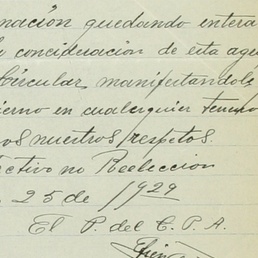 mación quedando entera
concideración de esta ag
Circular manifestandole
ierno en cualcquier tiempo
os nuestros respetos.
ectivo no Reeleccion
. 25 de 1929
El P. del C. P. A.